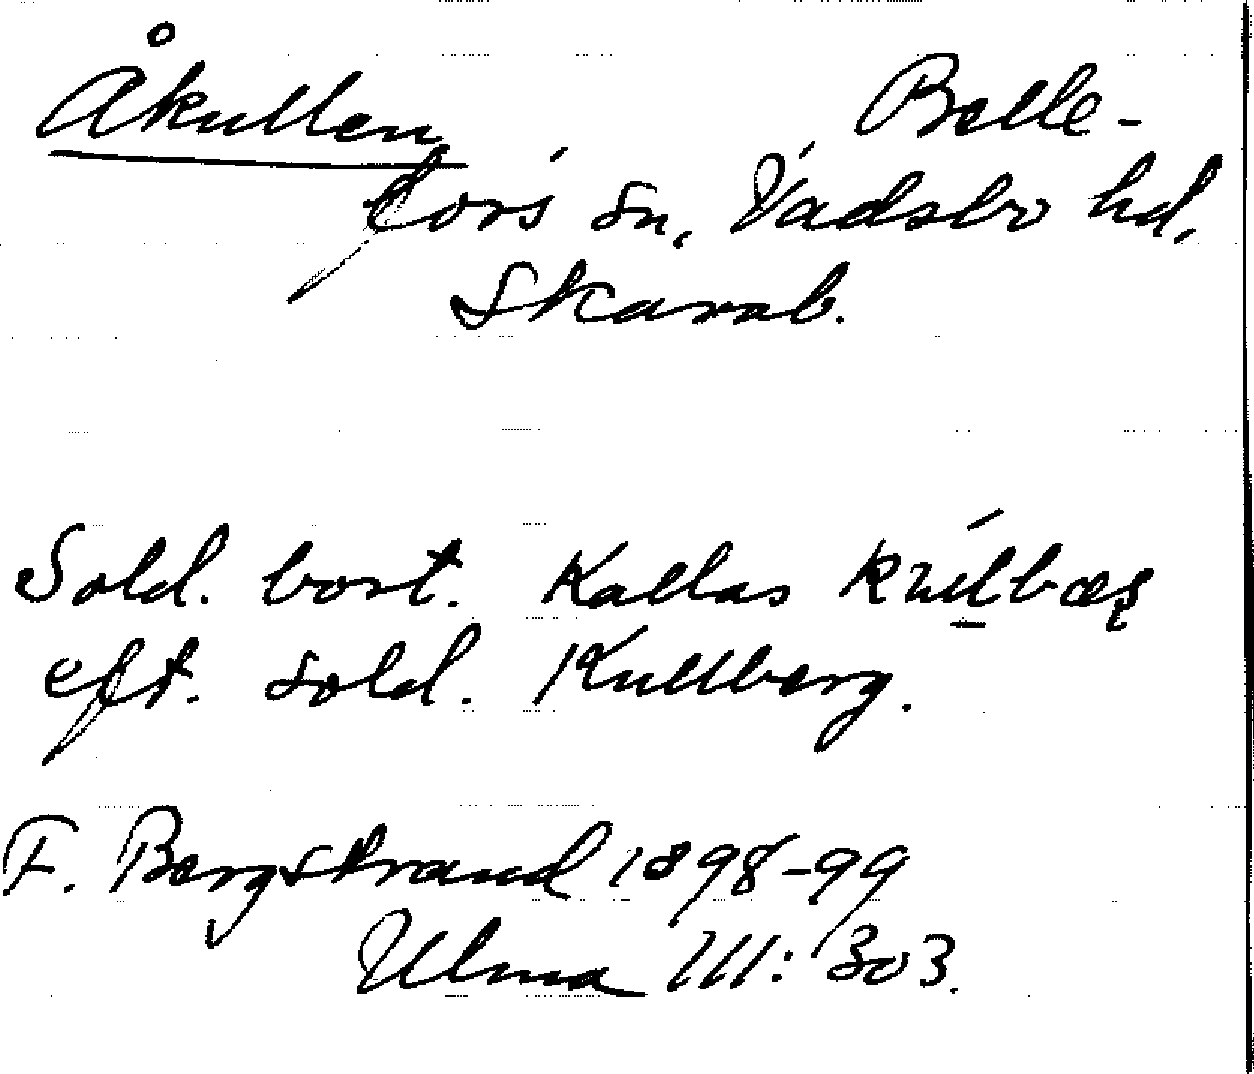 Åkullen Belle-
fors sn, Vadsbo hd,
Skarab.
Sold. bort. Kallas
eft. sold. Kullberg.
F. Bergstrand 1898-99
Ulma 111: 303.